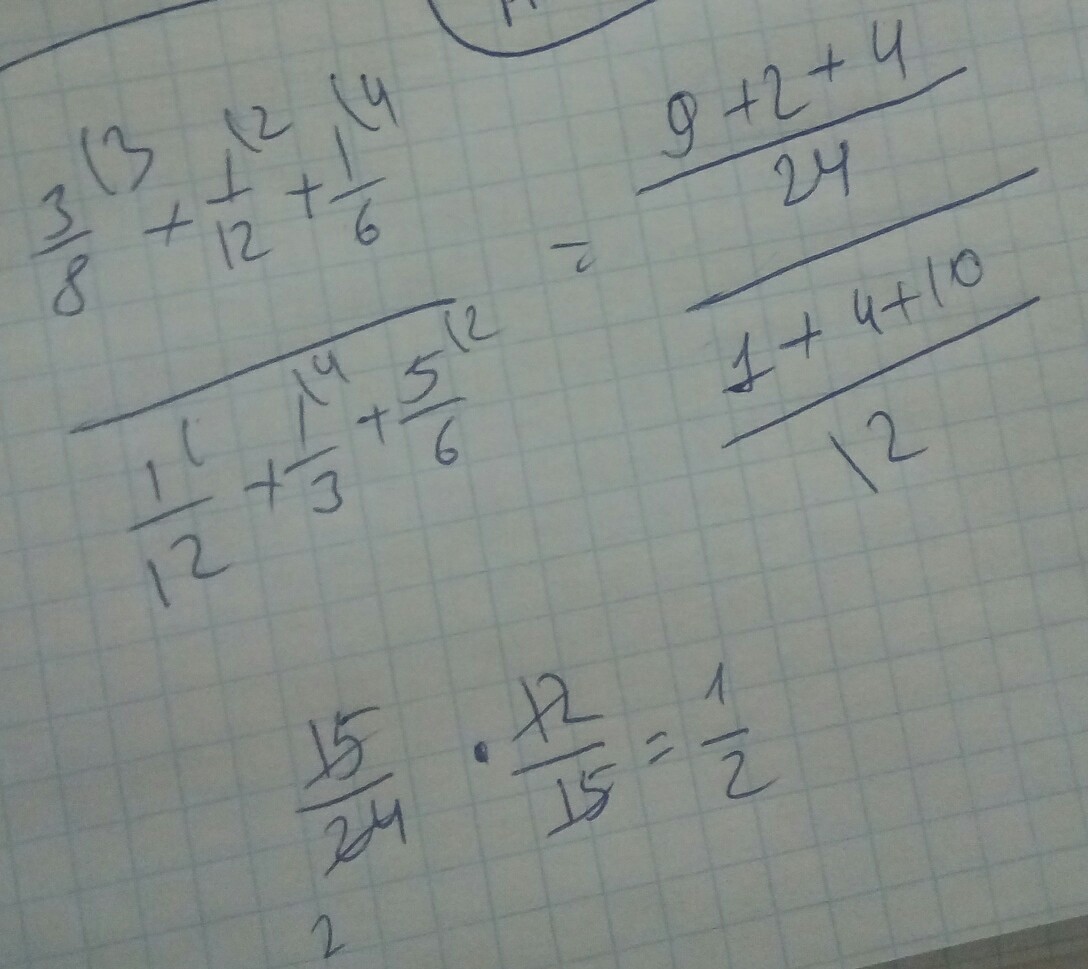 3/8 \3 + 1/12 \2 + 1/6 \4
1/12 \ + 1/3 \4 + 5/6 \2
=
9 + 2 + 4
24
1 + 4 + 10
12
15/24 · 12/15 = 1/2
2